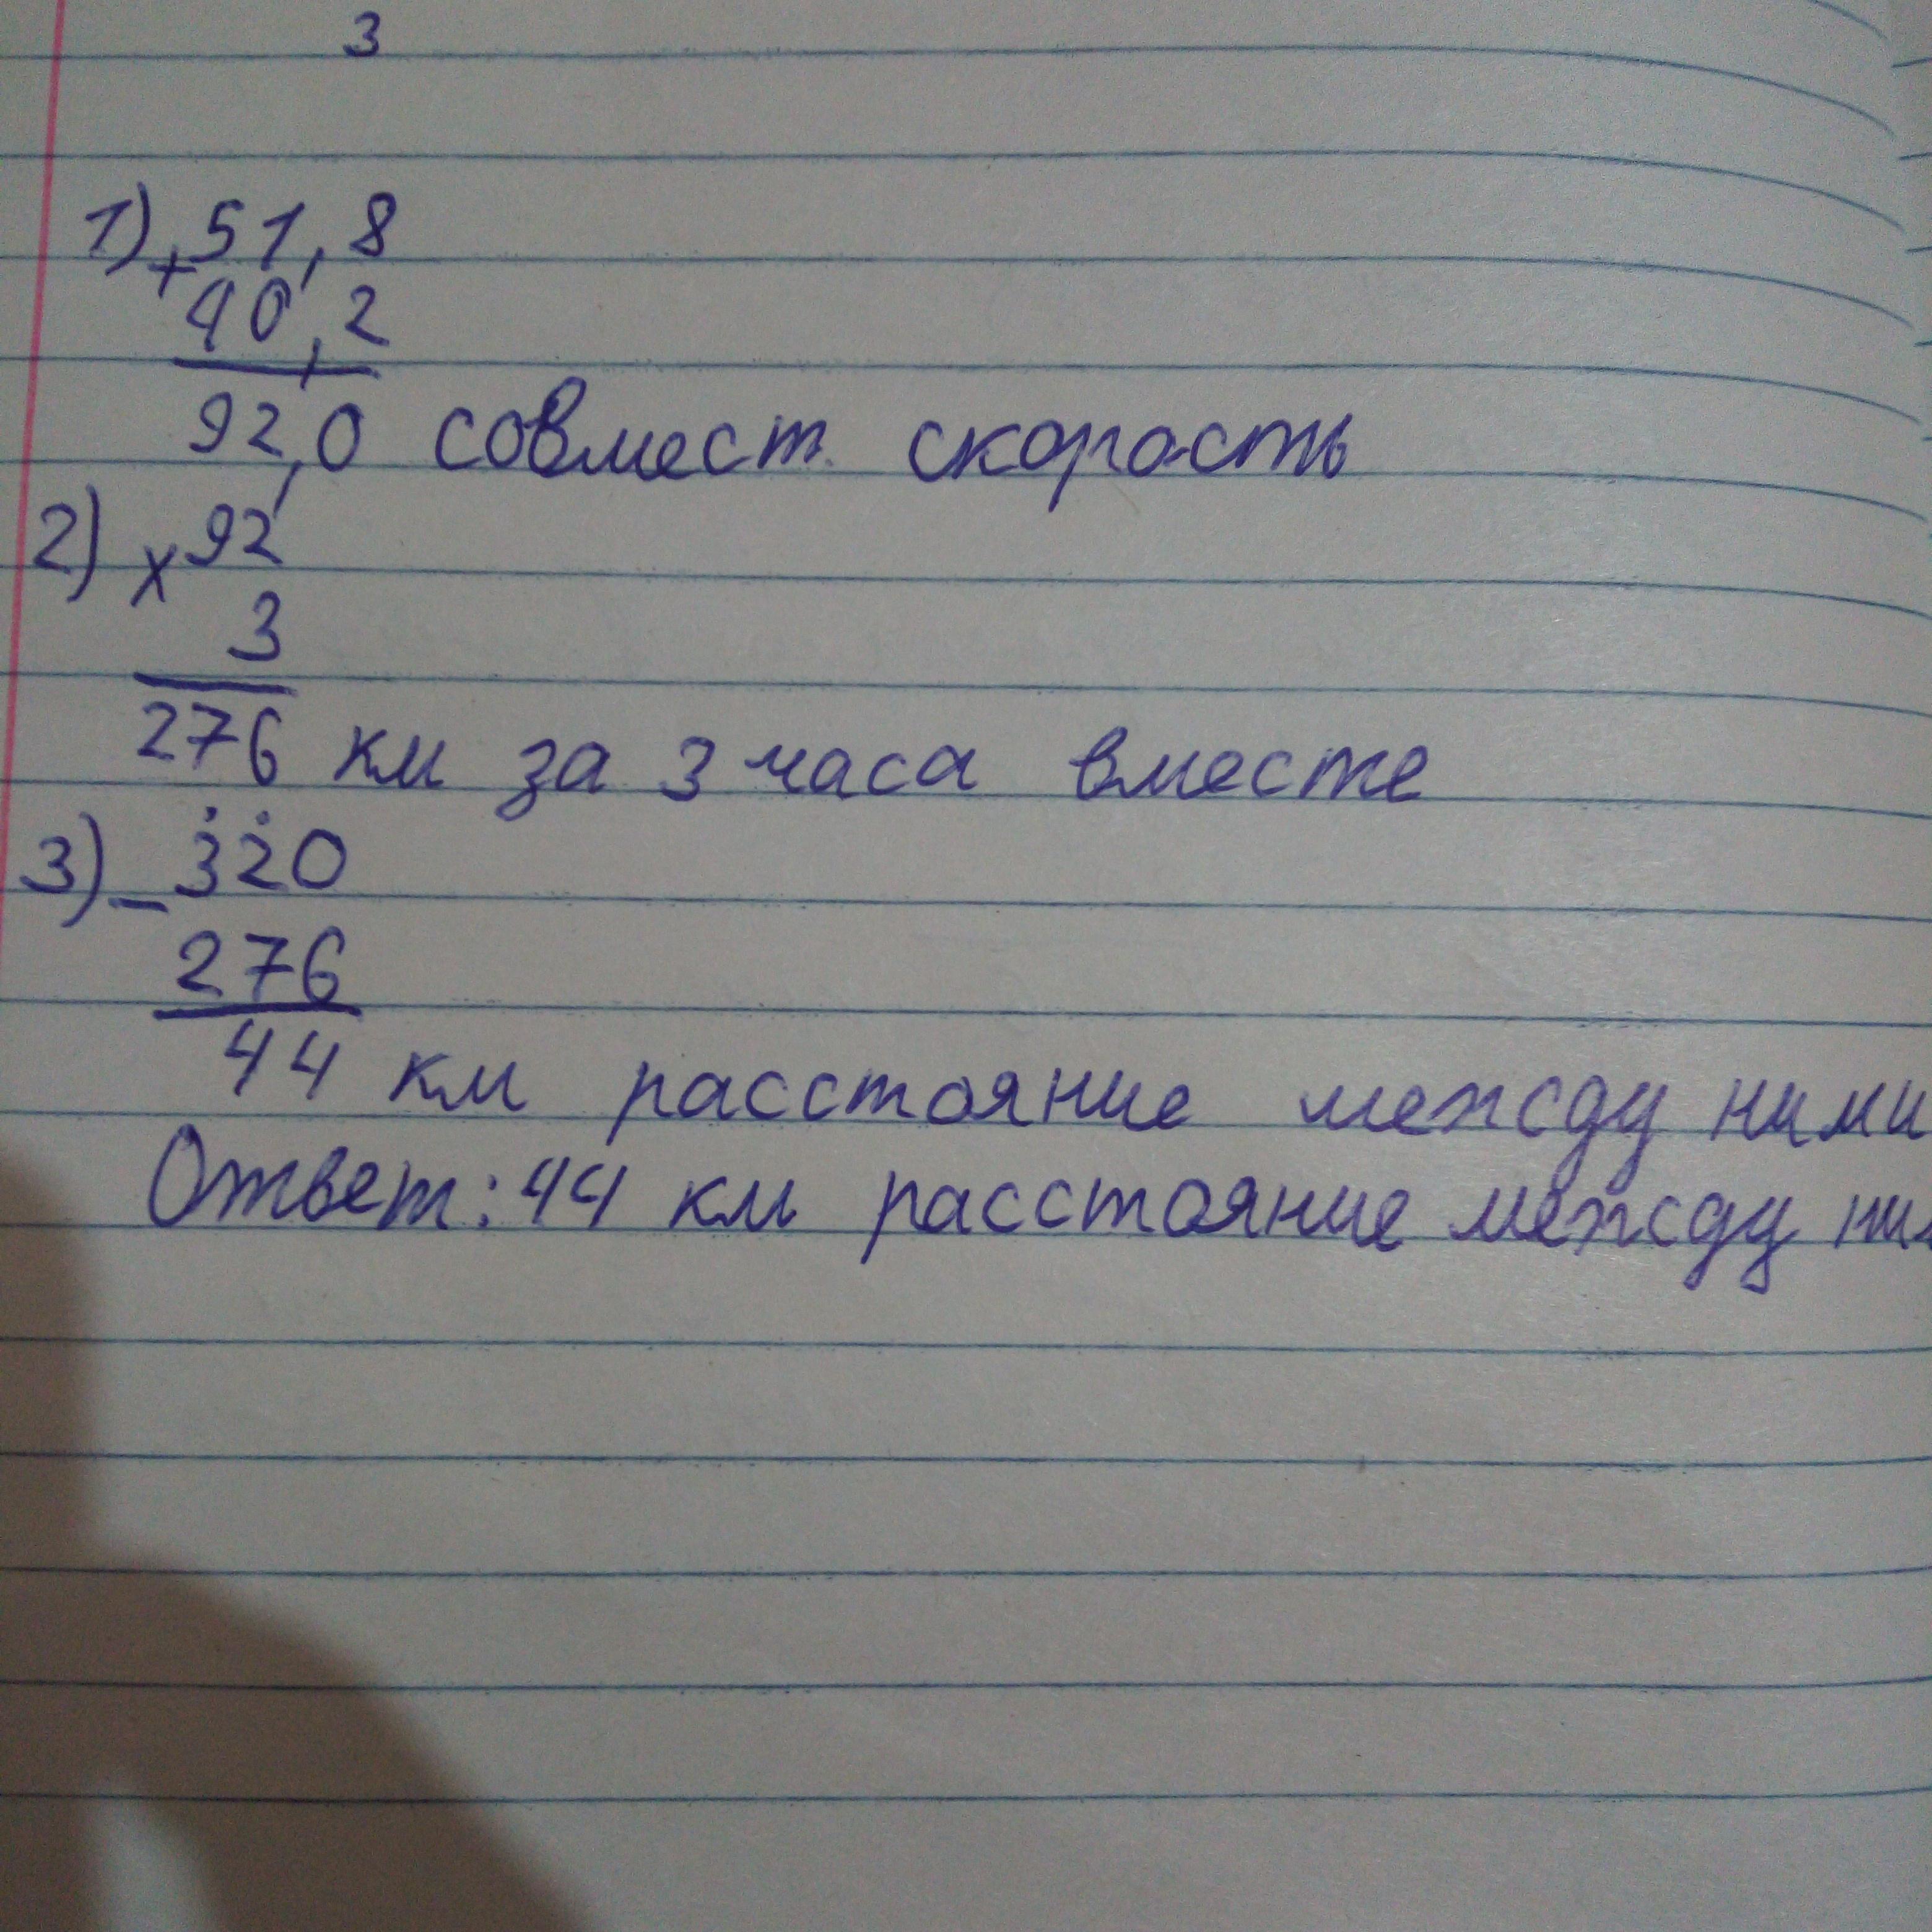 3
1) + 51,8
40,2
92,0 совмест. скорость
2) х 92
3
276 км за 3 часа вместе
3) - 320
276
44 км расстояние между ними
Ответ: 44 км расстояние между